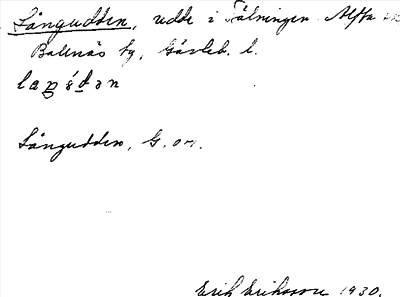 Långudden, udde i Tälningen Alfta
Bollnäs by, Gävleb. l.
Långudden, G. on.
Erik Eriksson 1930.